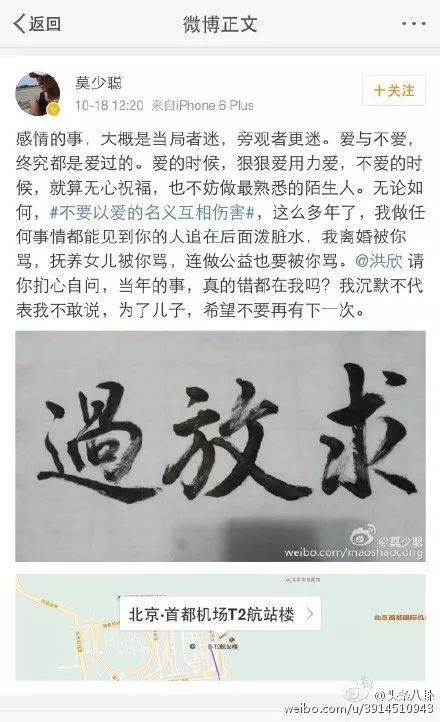 返回
微博正文
莫少聪
+关注
10-18 12:20 来自iPhone 6 Plus
感情的事，大概是当局者迷，旁观者更迷。爱与不爱，
终究都是爱过的。爱的时候，狠狠爱用力爱，不爱的时
候，就算无心祝福，也不妨做最熟悉的陌生人。无论如
何，#不要以爱的名义互相伤害#，这么多年了，我做任
何事情都能见到你的人追在后面泼脏水，我离婚被你
骂，抚养女儿被你骂，连做公益也要被你骂。@洪欣 请
你扪心自问，当年的事，真的错都在我吗？我沉默不代
表我不敢说，为了儿子，希望不要再有下一次。
過放求
@莫少聪
weibo.com/maoshaocong
北京·首都机场T2航站楼
T2航站楼
北京首都国际机
@头条八卦
weibo.com/u/3914510943